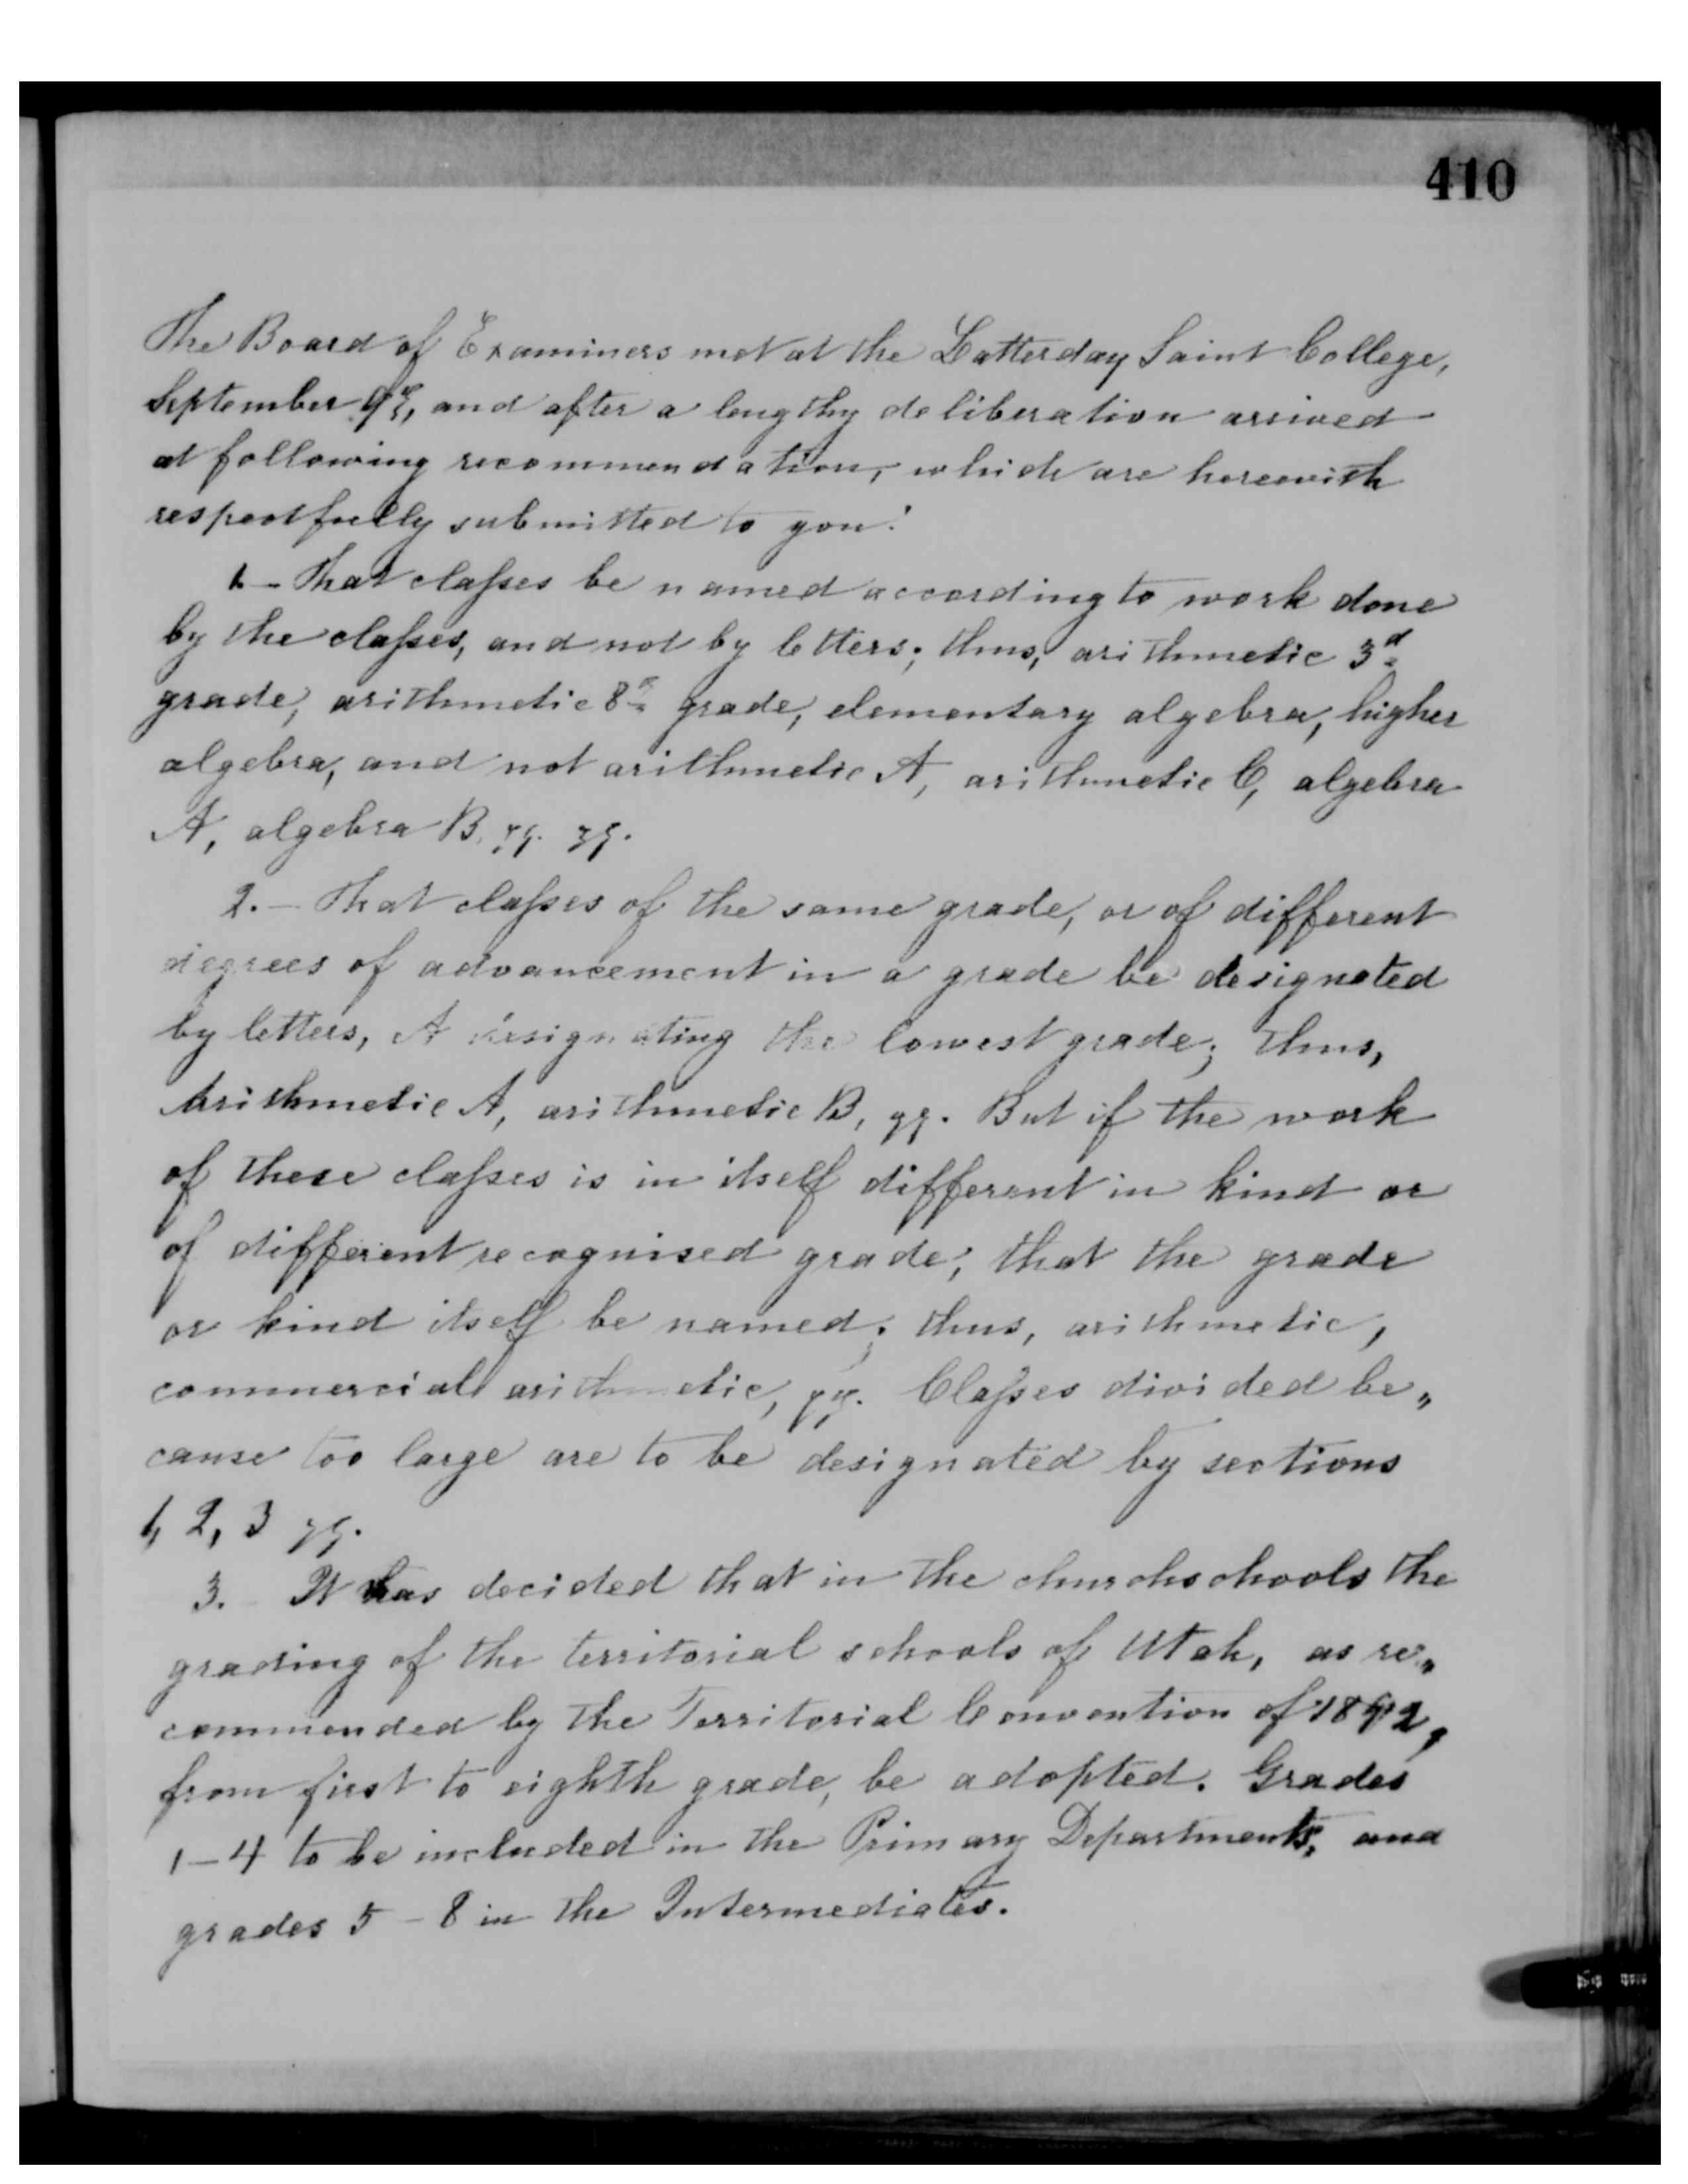 410
The Board of Examiners met at the Latterday Saint College,
September 9th, and after a lengthy deliberation arrived
at following recommendation, which are herewith
respectfully submitted to you:
1 – That classes be named according to work done
by the classes, and not by letters; thus, arithmetic 3d
grade, arithmetic 8th grade, elementary algebra, higher
algebra, and not arithmetic A, arithmetic C, algebra
A, algebra B,
2. – That classes of the same grade, or of different
degrees of advancement in a grade be designated
by letters, A designating the lowest grade; thus,
Arithmetic A, arithmetic B, But if the work
of these classes is in itself different in kind or
of different recognised grade, that the grade
or kind itself be named; thus, arithmetic,
commercial arithmetic, Classes divided be„
cause too large are to be designated by sections
1, 2, 3
3. It was decided that in the churchschools the
grading of the territorial schools of Utah, as re„
commended by the Territorial Convention of 1892,
from first to eighth grade, be adopted. Grades
1–4 to be included in the Primary Departments, and
grades 5–8 in the Intermediates.